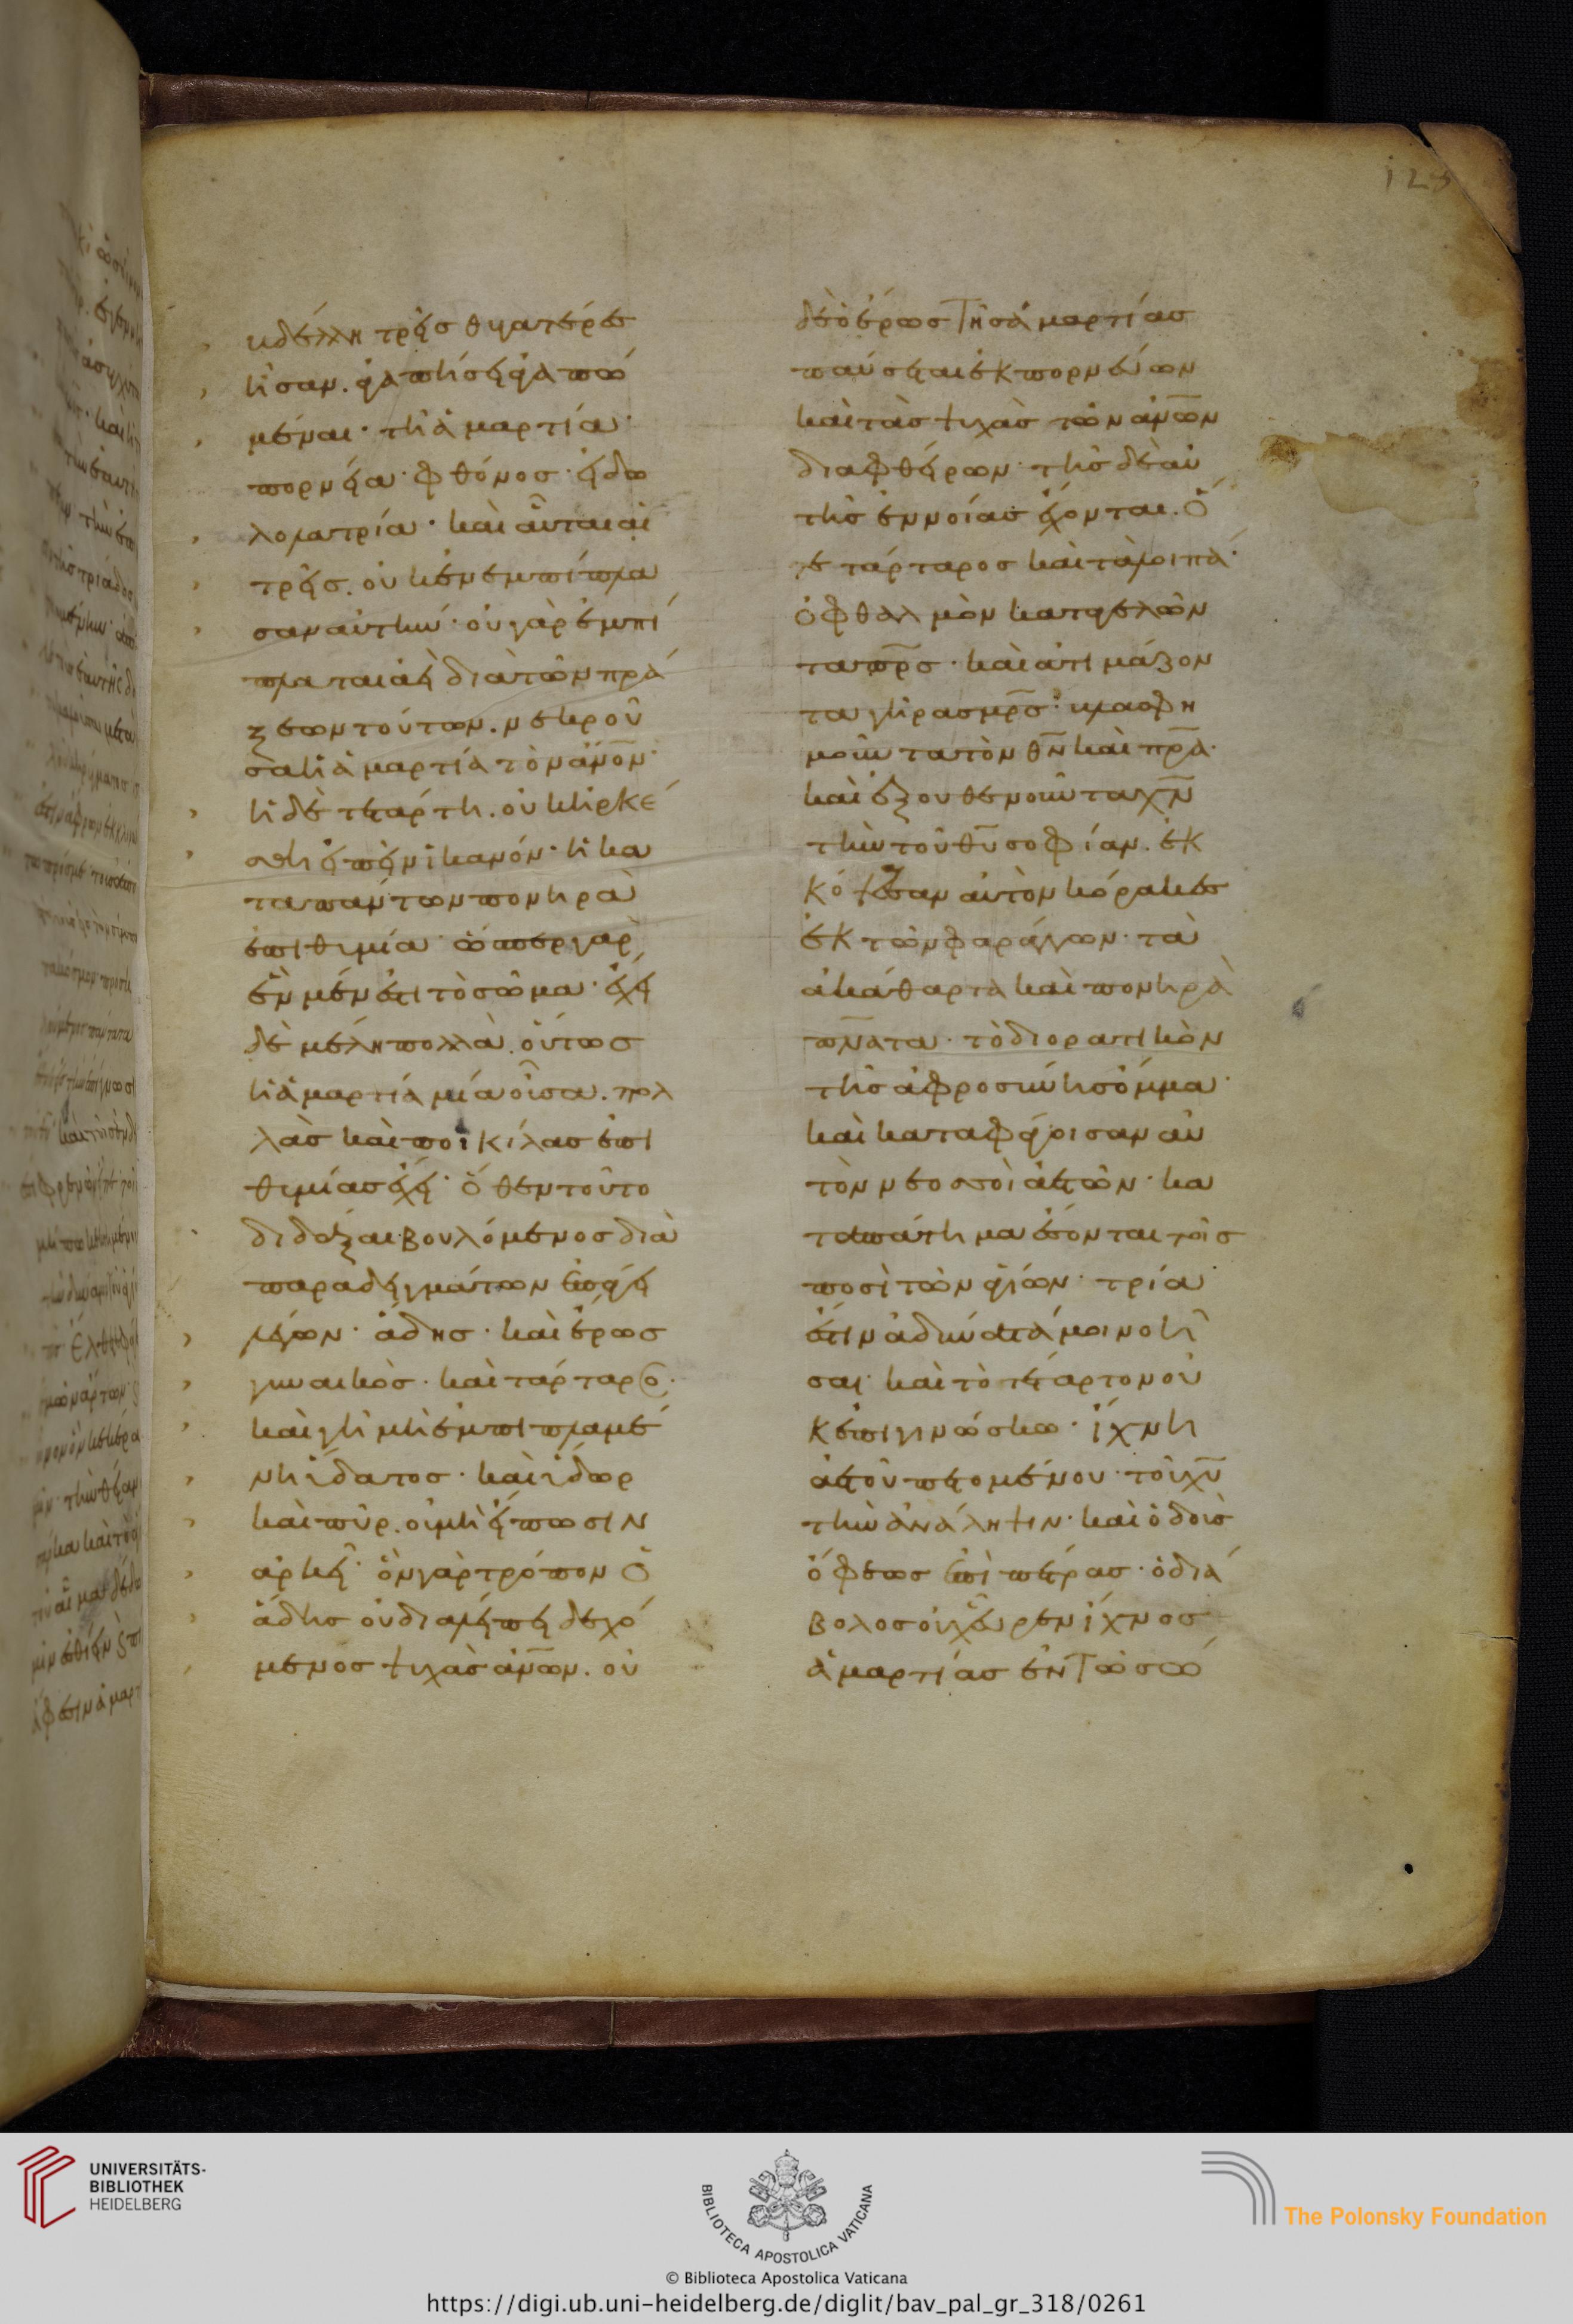 βδέλλη τρεῖς θυγατέρες
ἦσαν. ἀγαπήσει ἀγαπώ
μεναι· τῆ ἁμαρτία·
πορνεία· φθόνος· εἰδω
λολατρία· καὶ αὗται αἱ
τρεῖς. οὐκ ἐνεμπίπλα
σαν αὐτήν· οὐ γὰρ ἐμπί
πλαται ἀεὶ διὰ τῶν πρά
ξεων τούτων. νεκροῦ
σα ἡ ἁμαρτία τὸν ἄν̅ο̅ν·
ἡ δὲ τετάρτη. οὐκ ἠρκέ
σθη εἰπεῖν ἱκανόν· ἡ κα
τα πάντων πονηρὰ
ἐπιθυμία· ὥσπερ γὰρ
ἓν μέν ἐστι τὸ σῶμα· ἔχει
δὲ μέλη πολλὰ. οὕτως
ἡ ἁμαρτία μία οὖσα. πολ
λὰς καὶ ποικίλας ἐπι
θυμίας ἔχει· ὅθεν τοῦτο
διδάξαι βουλόμενος διὰ
παραδειγμάτων ἐπάγει
λέγων· ἅδης· καὶ ἔρως
γυναικὸς· καὶ τάρταρος·
καὶ γῆ μὴ ἐμπιπλαμέ
νη ὕδατος· καὶ ὕδωρ
καὶ πῦρ. οὐ μὴ εἴπωσιν
ἀρκεῖ· ὃν γὰρ τρόπον ὁ
ἅδης οὐ διαλείπει δεχό
μενος ψυχὰς ἀν̅ω̅ν. οὐ
125
δὲ ὁ ἔρως τῆς ἁμαρτίας
παύσεται ἐκ πορνειῶν
καὶ τὰς ψυχὰς τῶν ἀν̅ω̅ν
διαφθείρων· τῆς δὲ αὐ
τῆς ἐννοίας ἔχονται. ὅ
τε τάρταρος καὶ τὰ λοιπά·
ὀφθαλμὸν καταγελῶν
τα π̅ρ̅ς· καὶ ἀτιμάζον
τα γῆρας μ̅ρ̅ς· βλασφη
μοῦντα τὸν θ̅ν καὶ π̅ρ̅α·
καὶ ἐξουθενοῦντα χ̅ν
τὴν τοῦ θ̅υ σοφίαν. ἐκ
κόψαισαν αὐτὸν κόρακες
ἐκ τῶν φαράγγων· τὰ
ἀκάθαρτα καὶ πονηρὰ
π̅ν̅ατα· τὸ διορατικὸν
τῆς ἀφροσύνης ὄμμα·
καὶ καταφάγοισαν αὐ
τὸν νεοσσοὶ ἀετῶν· κα
ταπάτημα ἔσονται τοῖς
ποσὶ τῶν ἁγίων· τρία
ἐστιν ἀδύνατά μοι νοῆ
σαι· καὶ τὸ τέταρτον οὐ
κ ἐπιγινώσκω· ἴχνη
ἀετοῦ πετομένου· τοῦ χ̅υ
τὴν ἀνάληψιν· καὶ ὁδοὺς
ὄφεως ἐπὶ πέτρας· ὁ διά
βολος οὐχ εὗρεν ἴχνος
ἁμαρτίας ἐν τῶ σώ
UNIVERSITÄTS-
BIBLIOTHEK
HEIDELBERG
BIBLIOTECA APOSTOLICA VATICANA
The Polonsky Foundation
© Biblioteca Apostolica Vaticana
https://digi.ub.uni-heidelberg.de/diglit/bav_pal_gr_318/0261